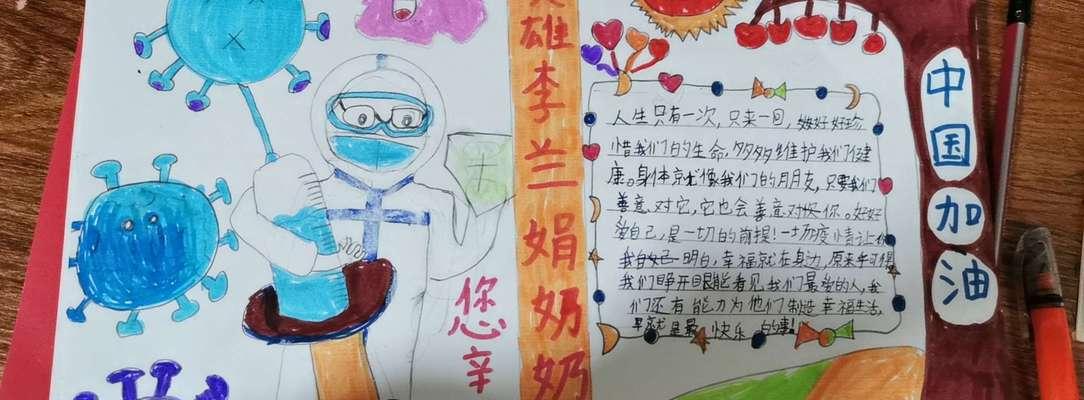 英雄李兰娟奶奶
您辛
人生只有一次,只来一回,好好珍
惜我们的生命,多多维护我们健
康。身体就像我们的朋友,只要我们
善意对它,它也会善意对你。好好
爱自己,是一切的前提!一场疫情让
我明白,幸福就在身边,原来
我们睁开眼能看见我们最爱的人,我
们还有能力为他们制造幸福生活,
就是最快乐的事!
中国加油